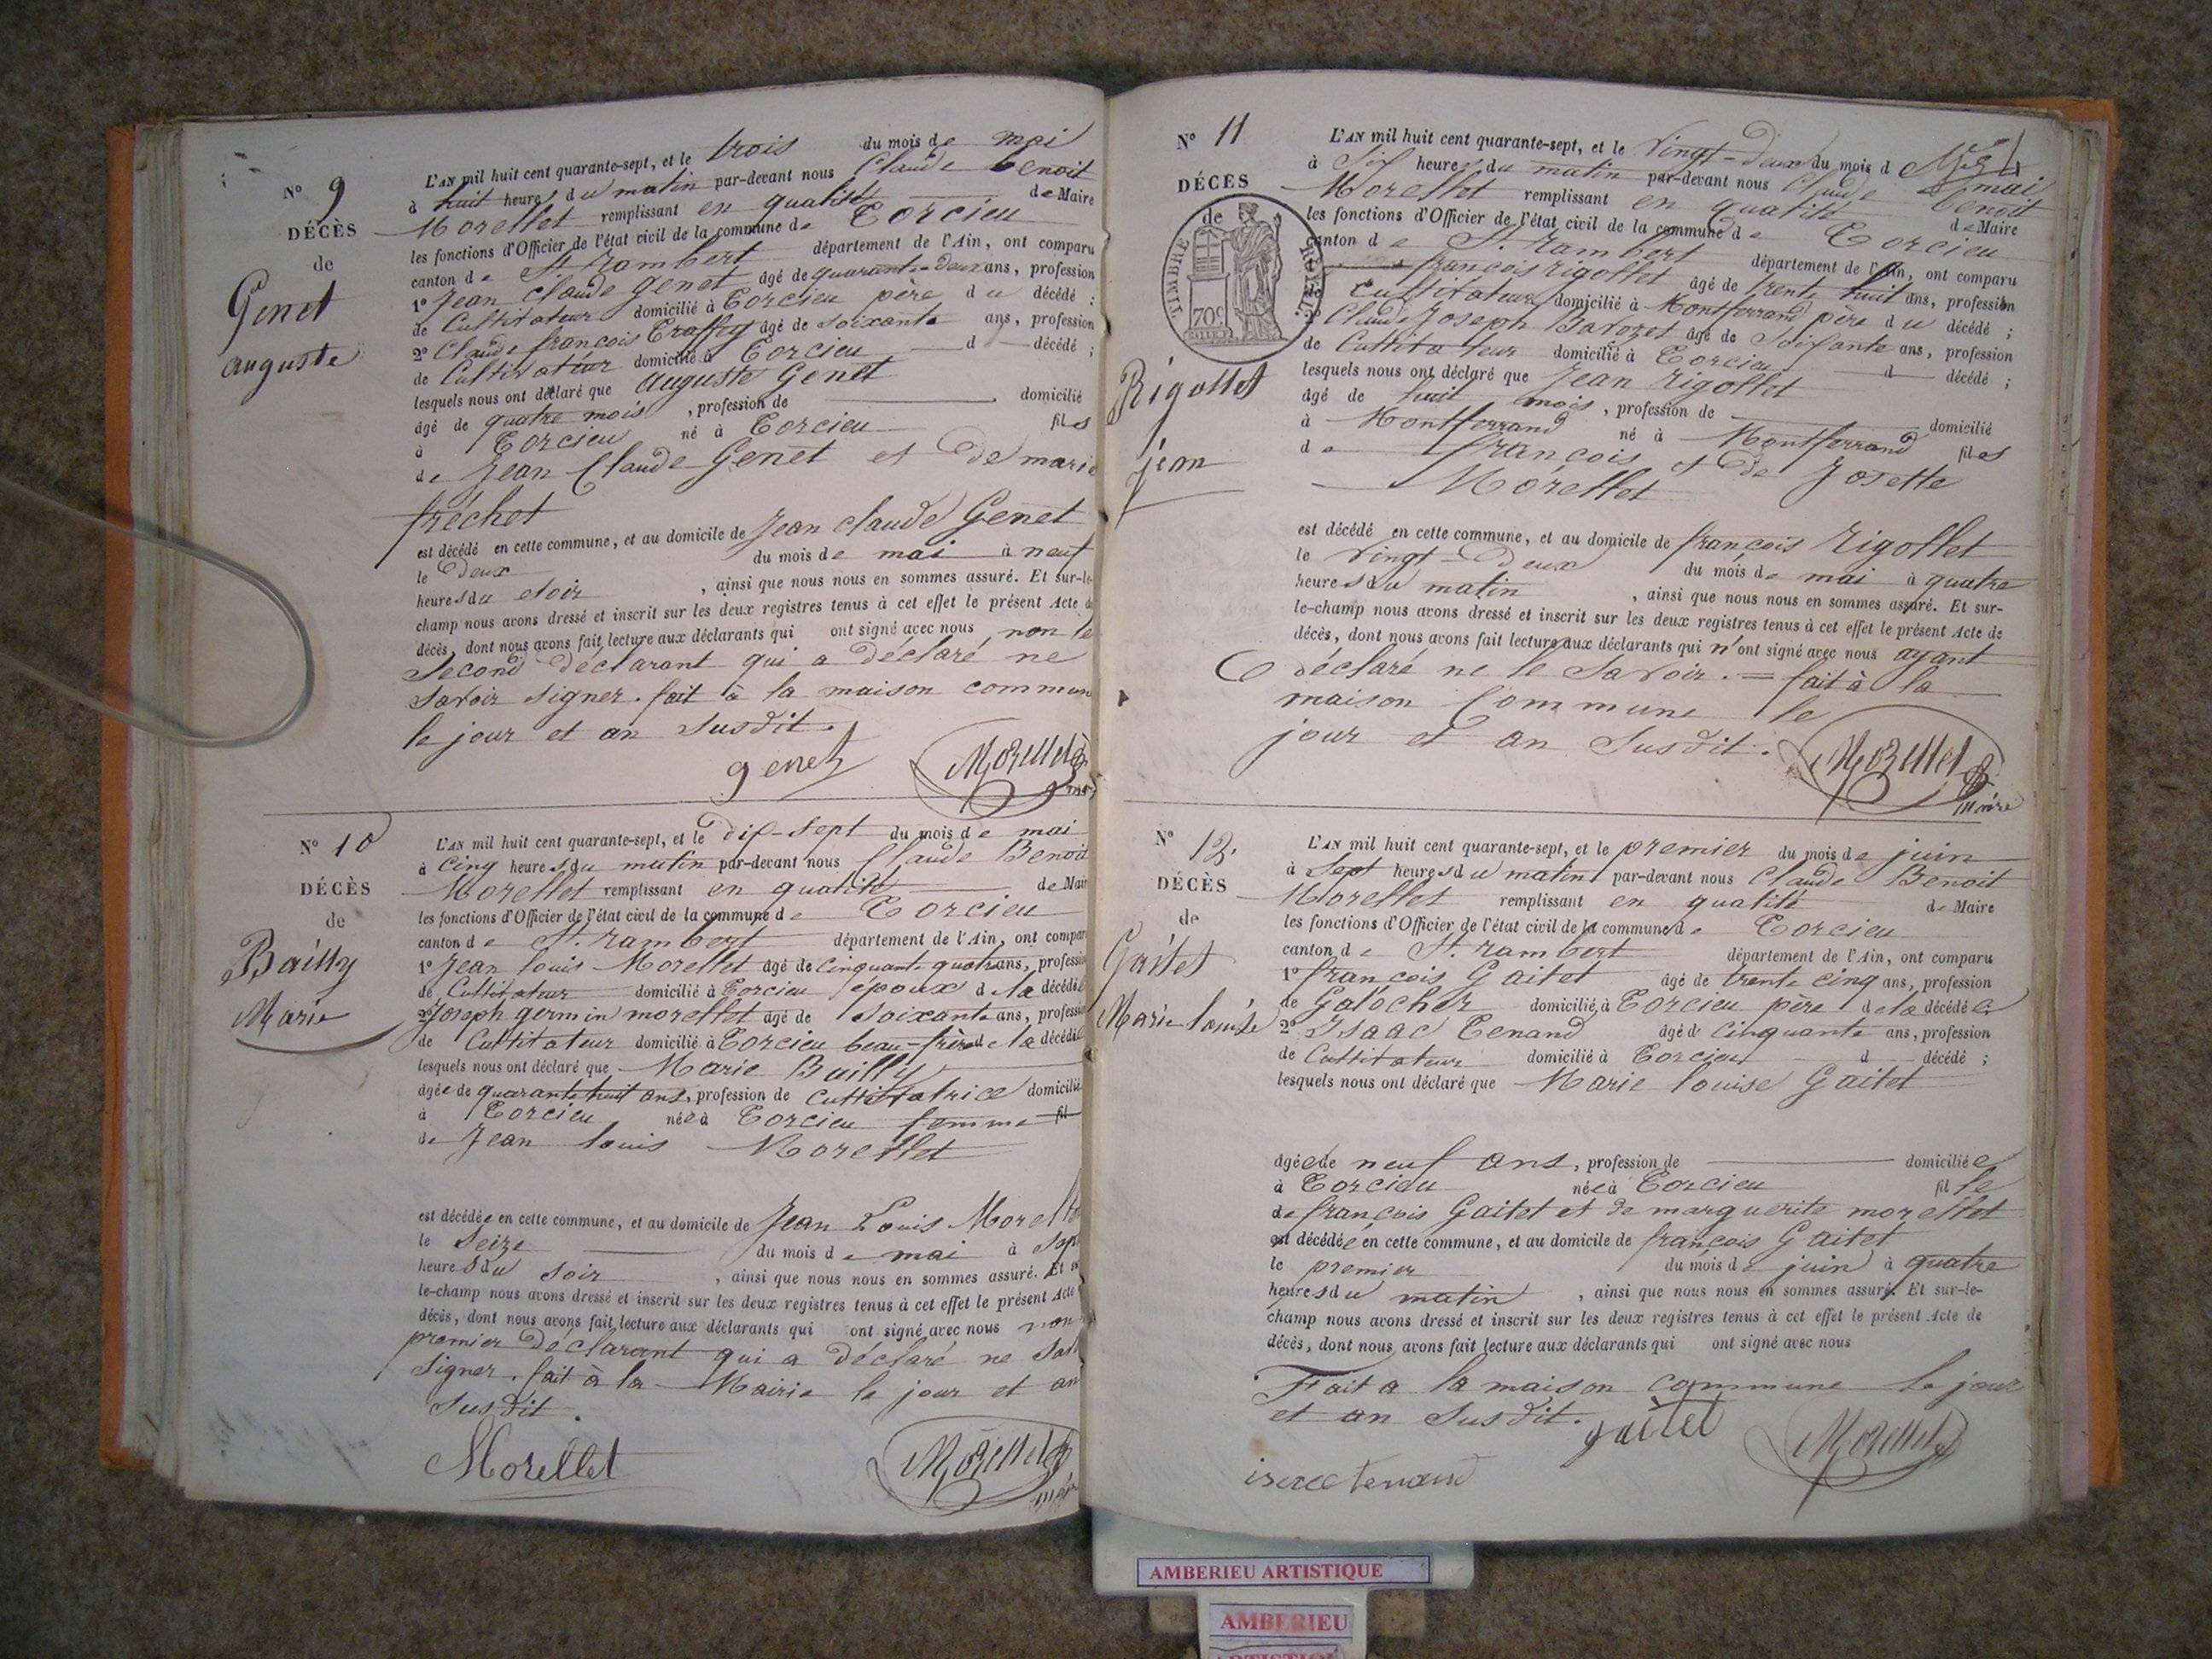 N° 9
DÉCÈS
de
Genet
auguste
L'AN mil huit cent quarante-sept, et le trois du mois de mai
à huit heures du matin par-devant nous Claude benoit
Morellet remplissant en qualité de Maire
les fonctions d'Officier de l'état civil de la commune de Torcieu
canton de St rambert département de l'Ain, ont comparu
1° Jean Claude genet âgé de quarante-deux ans, profession
de Cultivateur domicilié à Torcieu père du décédé ;
2° Claude françois Traffey âgé de soixante ans, profession
de Cultivateur domicilié à Torcieu d décédé ;
lesquels nous ont déclaré que auguste Genet
âgé de quatre mois, profession de domicilié
à Torcieu né à Torcieu fils
de Jean Claude Genet et de marie
fréchet
est décédé en cette commune, et au domicile de Jean claude Genet
le deux du mois de mai à neuf
heures du soir, ainsi que nous nous en sommes assuré. Et sur-le-
champ nous avons dressé et inscrit sur les deux registres tenus à cet effet le présent Acte de
décès, dont nous avons fait lecture aux déclarants qui ont signé avec nous non le
Second déclarant qui a déclaré ne
savoir signer. fait à la maison commune
le jour et an susdit.
genet Morellet
N° 10
DÉCÈS
de
Bailly
Marie
L'AN mil huit cent quarante-sept, et le dix-sept du mois de mai
à cinq heures du matin par-devant nous Claude Benoit
Morellet remplissant en qualité de Mair
les fonctions d'Officier de l'état civil de la commune de Torcieu
canton de St. rambert département de l'Ain, ont compar
1° Jean louis Morellet âgé de cinquante quatre ans, professi
de Cultivateur domicilié à Torcieu époux de la décédée
2° Joseph germin morellet âgé de soixante ans, professi
de Cultivateur domicilié à Torcieu beau-frère de la décédée
lesquels nous ont déclaré que Marie Bailly
âgée de quarante huit ans, profession de cultivatrice domicilié
à Torcieu née à Torcieu femme fil
de Jean louis Morellet
est décédée en cette commune, et au domicile de Jean Louis Morellet
le seize du mois de mai à sept
heures du soir, ainsi que nous nous en sommes assuré. Et
le-champ nous avons dressé et inscrit sur les deux registres tenus à cet effet le présent Acte
décès, dont nous avons fait lecture aux déclarants qui ont signé avec nous non
premier déclarant qui a déclaré ne
signer. fait à la Mairie le jour et an
susdit.
Morellet Morellet
N° 11
DÉCÈS
de
TIMBRE ROYAL
70c
Rigollet
jean
L'AN mil huit cent quarante-sept, et le vingt-deux du mois d
mai
à Six heures du matin par-devant nous Claude benoit
Morellet remplissant en qualité de Maire
les fonctions d'Officier de l'état civil de la commune de Torcieu
canton de St. rambert département de l'Ain, ont comparu
françois rigollet âgé de trente huit ans, profession
cultivateur domicilié à Montferrand père du décédé ;
Claude Joseph Barozet âgé de Soixante ans, profession
de Cultivateur domicilié à Torcieu d décédé ;
lesquels nous ont déclaré que Jean rigollet
âgé de huit mois, profession de domicilié
à Montferrand né à Montferrand fils
de françois et de Josette
Morellet
est décédé en cette commune, et au domicile de françois rigollet
le vingt-deux du mois de mai à quatre
heures du matin, ainsi que nous nous en sommes assuré. Et sur-
le-champ nous avons dressé et inscrit sur les deux registres tenus à cet effet le présent Acte de
décès, dont nous avons fait lecture aux déclarants qui n'ont signé avec nous ayant
déclaré ne le savoir. = fait à la
maison Commune le
jour et an Susdit.
Morellet
maire
N° 12.
DÉCÈS
de
Gaitet
Marie louise
L'AN mil huit cent quarante-sept, et le premier du mois de juin
à sept heures du matin par-devant nous Claude Benoit
Morellet remplissant en qualité de Maire
les fonctions d'Officier de l'état civil de la commune de Torcieu
canton de St. rambert département de l'Ain, ont comparu
1° françois Gaitet âgé de trente cinq ans, profession
de Galocher domicilié à Torcieu père de la décédée
2° Isaac Tenand âgé de cinquante ans, profession
de Cultivateur domicilié à Torcieu d décédé ;
lesquels nous ont déclaré que Marie louise Gaitet
âgée de neuf ans, profession de domiciliée
à Torcieu née à Torcieu fille
de françois Gaitet et de marguerite morellet
est décédée en cette commune, et au domicile de françois Gaitet
le premier du mois de juin à quatre
heures du matin, ainsi que nous nous en sommes assuré. Et sur-le-
champ nous avons dressé et inscrit sur les deux registres tenus à cet effet le présent Acte de
décès, dont nous avons fait lecture aux déclarants qui ont signé avec nous
Fait a la maison commune le jour
et an susdit. gaitet Morellet
tenand
AMBERIEU ARTISTIQUE
AMBERIEU
ARTISTIQUE